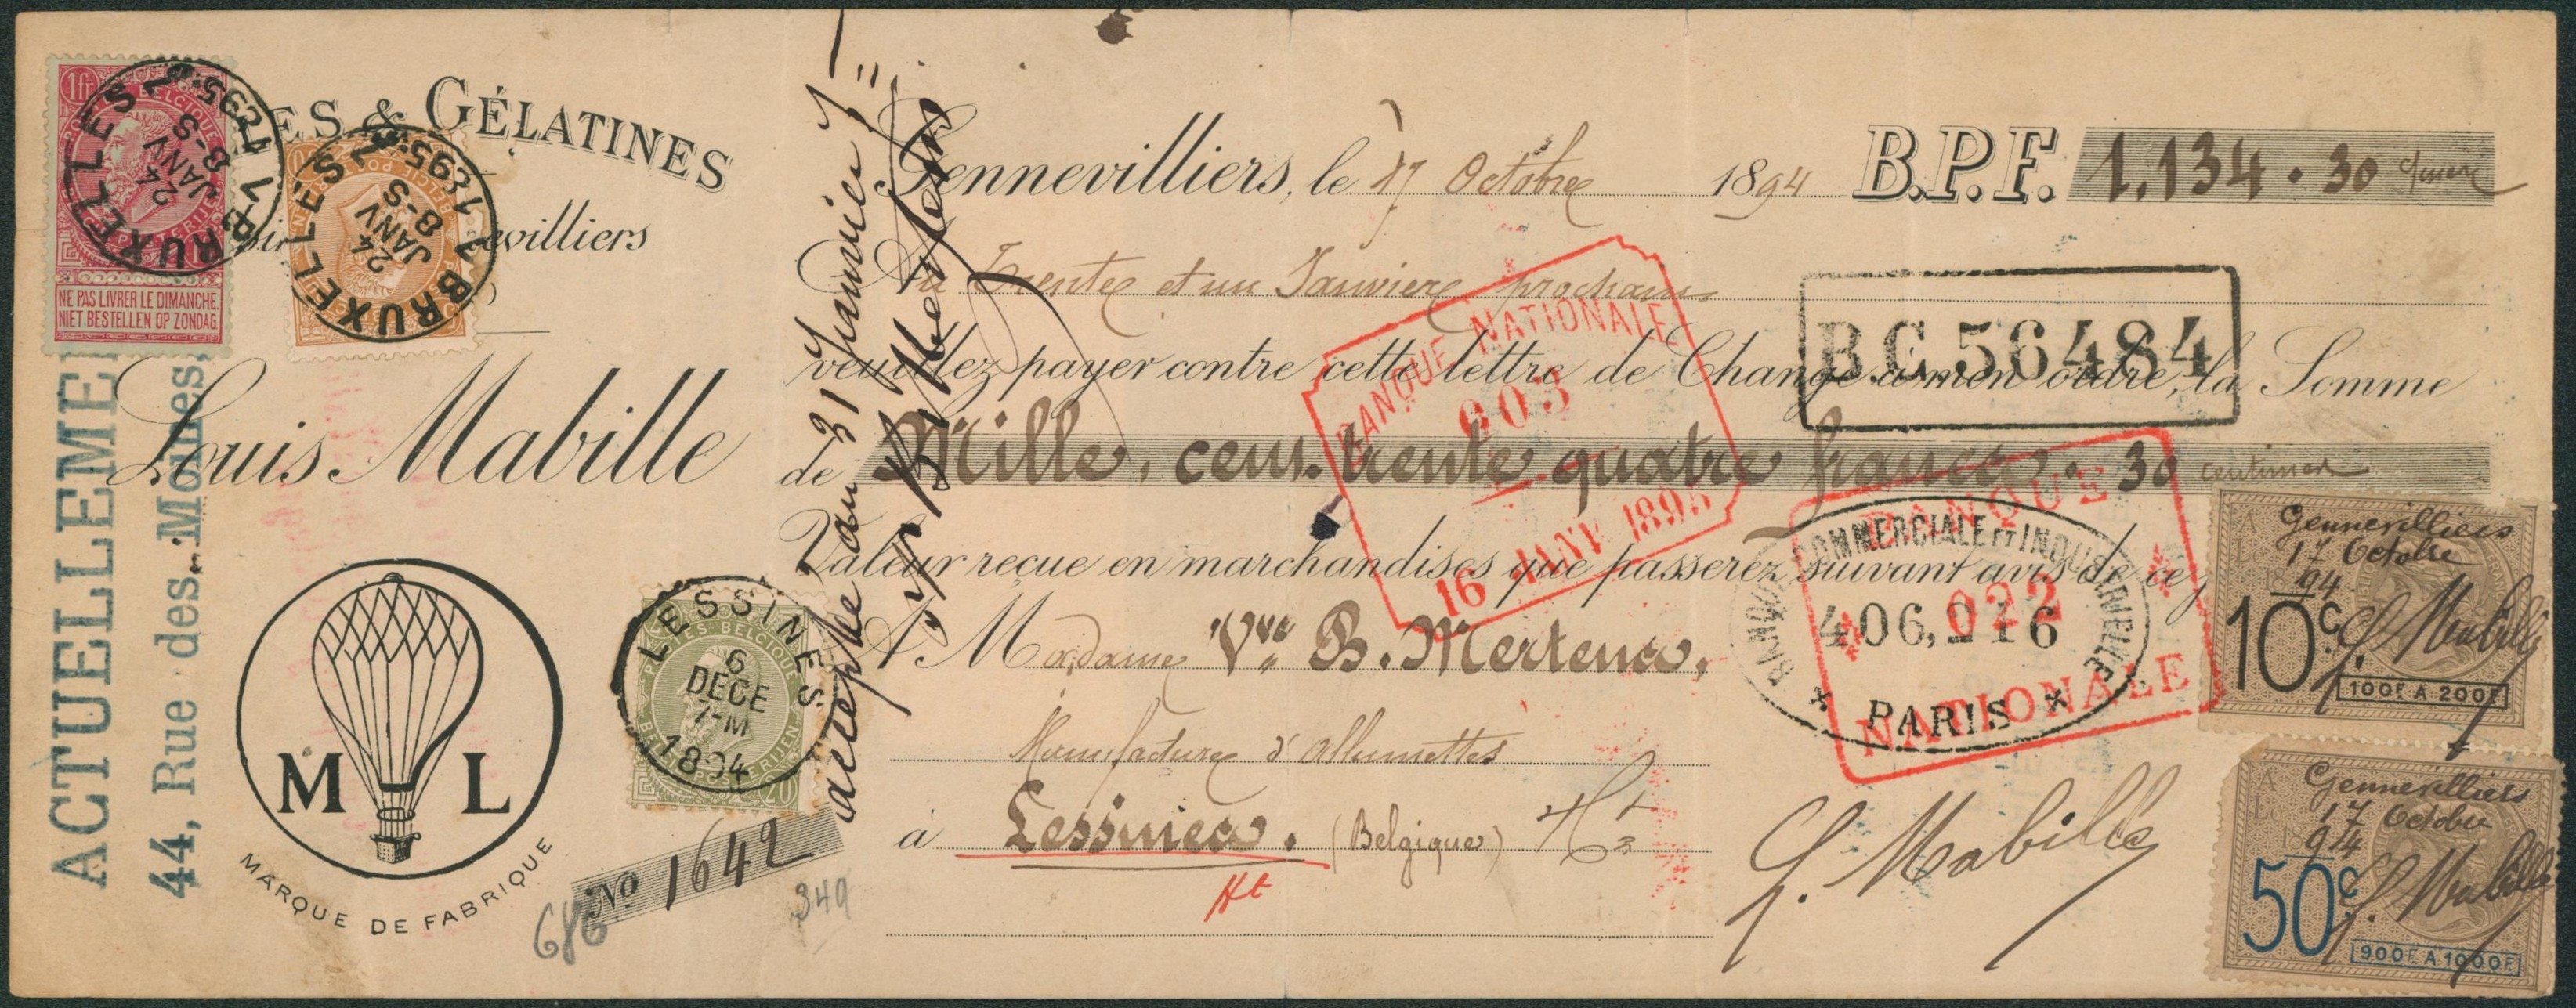 1fr
NE PAS LIVRER LE DIMANCHE
NIET BESTELLEN OP ZONDAG
BRUXELLES 1
24
JANV
8-S
1895
BRUXELLES 1
24
JANV
8-S
1895
ES & GÉLATINES
evilliers
Louis Mabille
ACTUELLEME
44, Rue des Moules
M L
MARQUE DE FABRIQUE
LESSINES
6
DECE
7-M
1894
POSTES BELGIQUE
No 1642
686
349
accepté au 31 Janvier
Vve B Mertens
Gennevilliers, le 17 Octobre 1894 B.P.F. 1.134.30
Au Trente et un Janvier prochain
veuillez payer contre cette lettre de Change à mon ordre, la Somme
de Mille, cent trente quatre francs. 30 centimes
Valeur reçue en marchandises que passerez suivant avis de
A Madame Vve B. Mertens,
Manufacture d'allumettes
à Lessines. (Belgique) Ht
Ht
BANQUE NATIONALE
603
16 JANV 1895
B.C. 56484
BANQUE COMMERCIALE ET INDUSTRIELLE
406,216
* PARIS *
BANQUE
022
NATIONALE
L. Mabille
Gennevilliers
17 Octobre
94
L. Mabille
10c
100F A 200F
Gennevilliers
17 Octobre
94
L. Mabille
50c
900F A 1000F